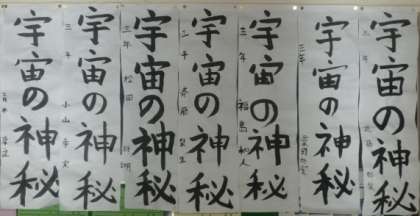 宇宙の神秘
三年
宇宙の神秘
三年
小山
宇宙の神秘
三年
松田
宇宙の神秘
三年
宇宙の神秘
三年
福島
宇宙の神秘
三年
宇宙の神秘
三年